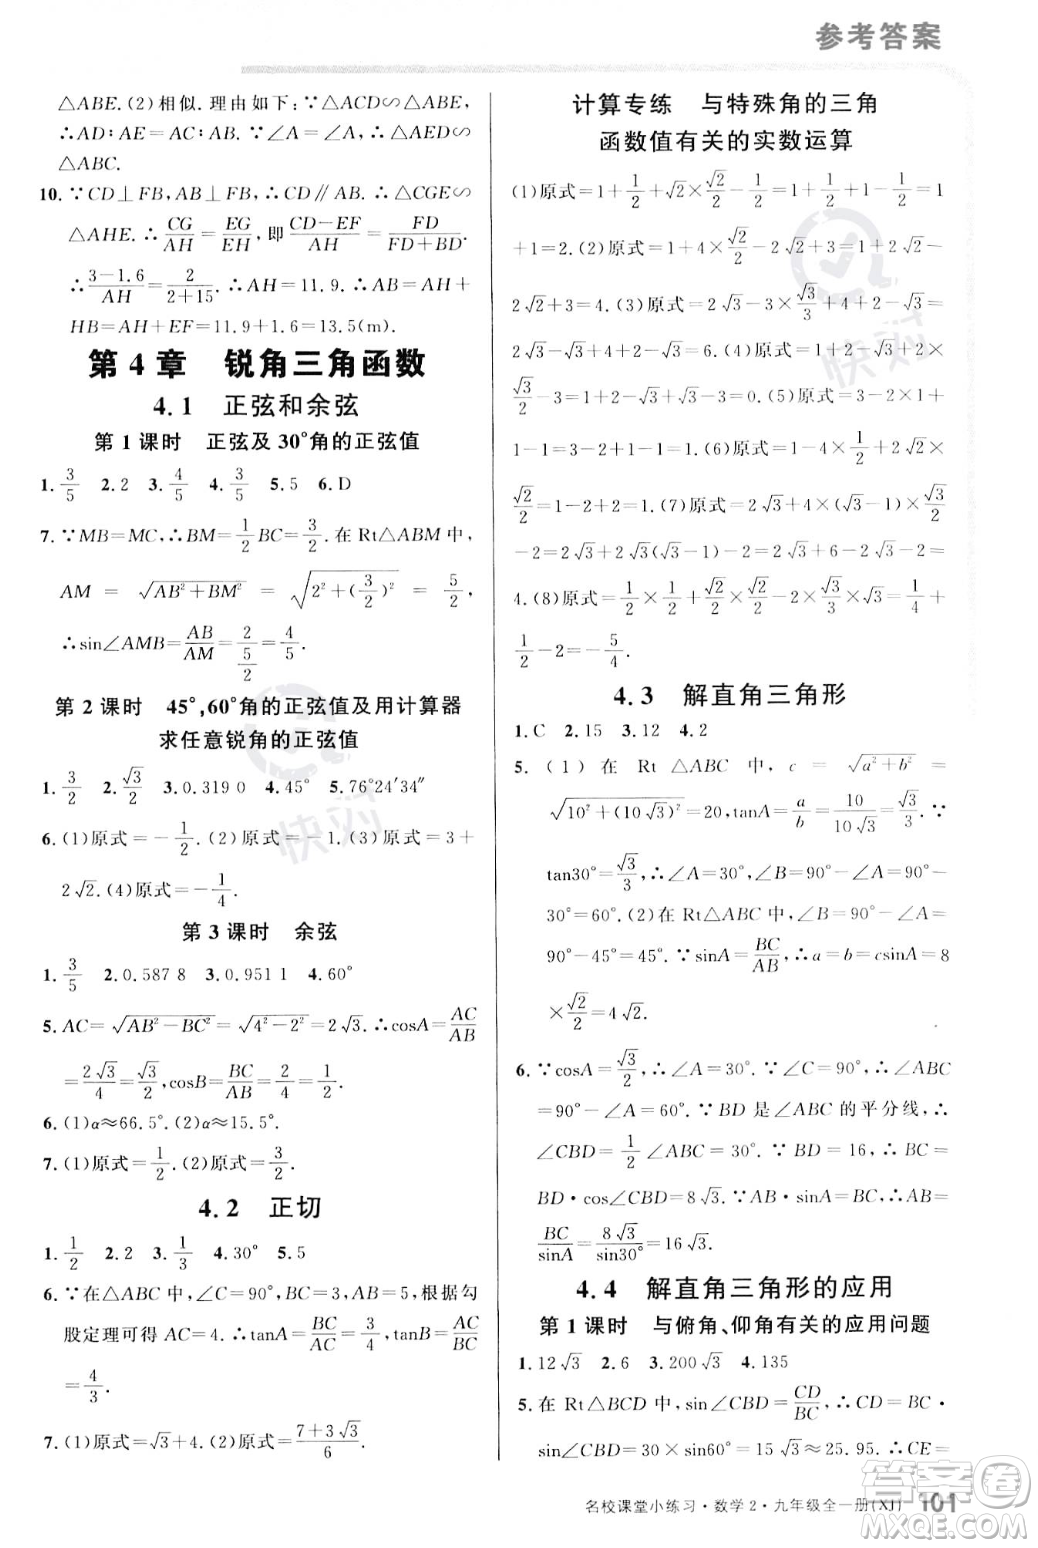 参考答案
△ABE.(2)相似.理由如下:∵△ACD∽△ABE,
∴AD:AE=AC:AB.∵∠A=∠A,∴△AED∽
△ABC.
10.∵CD⊥FB,AB⊥FB,∴CD∥AB.∴△CGE∽
△AHE.∴CG/AH=EG/EH,即(CD-EF)/AH=FD/(FD+BD).
∴(3-1.6)/AH=2/(2+15).∴AH=11.9.∴AB=AH+
HB=AH+EF=11.9+1.6=13.5(m).
第4章 锐角三角函数
4.1 正弦和余弦
第1课时 正弦及30°角的正弦值
1.3/5 2.2 3.4/5 4.3/5 5.5 6.D
7.∵MB=MC,∴BM=1/2BC=3/2.在Rt△ABM中,
AM=√(AB²+BM²)=√(2²+(3/2)²)=5/2.
∴sin∠AMB=AB/AM=2/(5/2)=4/5.
第2课时 45°,60°角的正弦值及用计算器
求任意锐角的正弦值
1.3/2 2.√3/2 3.0.319 0 4.45° 5.76°24′34″
6.(1)原式=-1/2.(2)原式=-1.(3)原式=3+
2√2.(4)原式=-1/4.
第3课时 余弦
1.3/5 2.0.587 8 3.0.951 1 4.60°
5.AC=√(AB²-BC²)=√(4²-2²)=2√3.∴cosA=AC/AB
=2√3/4=√3/2,cosB=BC/AB=2/4=1/2.
6.(1)α≈66.5°.(2)α≈15.5°.
7.(1)原式=1/2.(2)原式=3/2.
4.2 正切
1.1/2 2.2 3.√3/3 4.30° 5.5
6.∵在△ABC中,∠C=90°,BC=3,AB=5,根据勾
股定理可得AC=4.∴tanA=BC/AC=3/4,tanB=AC/BC
=4/3.
7.(1)原式=√3+4.(2)原式=(7+3√3)/6.
计算专练 与特殊角的三角
函数值有关的实数运算
(1)原式=1+1/2+√2×√2/2-1/2=1+1/2+1-1/2=1
+1=2.(2)原式=1+4×√2/2-2√2+3=1+2√2-
2√2+3=4.(3)原式=2√3-3×√3/3+4+2=
2√3-√3+4+2-√3=6.(4)原式=2√3-2×
√3/2-√3=2√3-√3-√3=0.(5)原式=√2×√2/2
-1×1/2=1-1/2=1/2.(6)原式=1-4×1/2+√2×
√2/2=1-2+1=0.(7)原式=2√3×(√3-1)×√3/3
-2=2√3×√3/3(√3-1)-2=2(√3-1)-2=2√3-
4.(8)原式=1/2×1/2+√2/2×√2/2-√3×√3/3=1/4+
1/2-1=-1/4.
4.3 解直角三角形
1.C 2.15 3.12 4.2
5.(1)在Rt△ABC中,c=√(a²+b²)=
√(10²+(10√3)²)=20,tanA=a/b=10/(10√3)=√3/3.∵
tan30°=√3/3,∴∠A=30°.∴∠B=90°-∠A=90°-
30°=60°.(2)在Rt△ABC中,∠B=90°-∠A=
90°-45°=45°.∵sinA=BC/AB,∴a=b=csinA=8
×√2/2=4√2.
6.∵cosA=√3/2,∴∠A=30°.∵∠C=90°,∴∠ABC
=90°-∠A=60°.∵BD是∠ABC的平分线,∴
∠CBD=1/2∠ABC=30°.∵BD=16,∴BC=
BD·cos∠CBD=8√3.∵AB·sinA=BC,∴AB=
BC/sinA=8√3/sin30°=16√3.
4.4 解直角三角形的应用
第1课时 与俯角、仰角有关的应用问题
1.12√3 2.6 3.200√3 4.135
5.在Rt△BCD中,sin∠CBD=CD/BC,∴CD=BC·
sin∠CBD=30×sin60°=15√3≈25.95.∴CE=
名校课堂小练习·数学2·九年级全一册(XJ) 101
快对
快对
答案圈
MXQE.COM